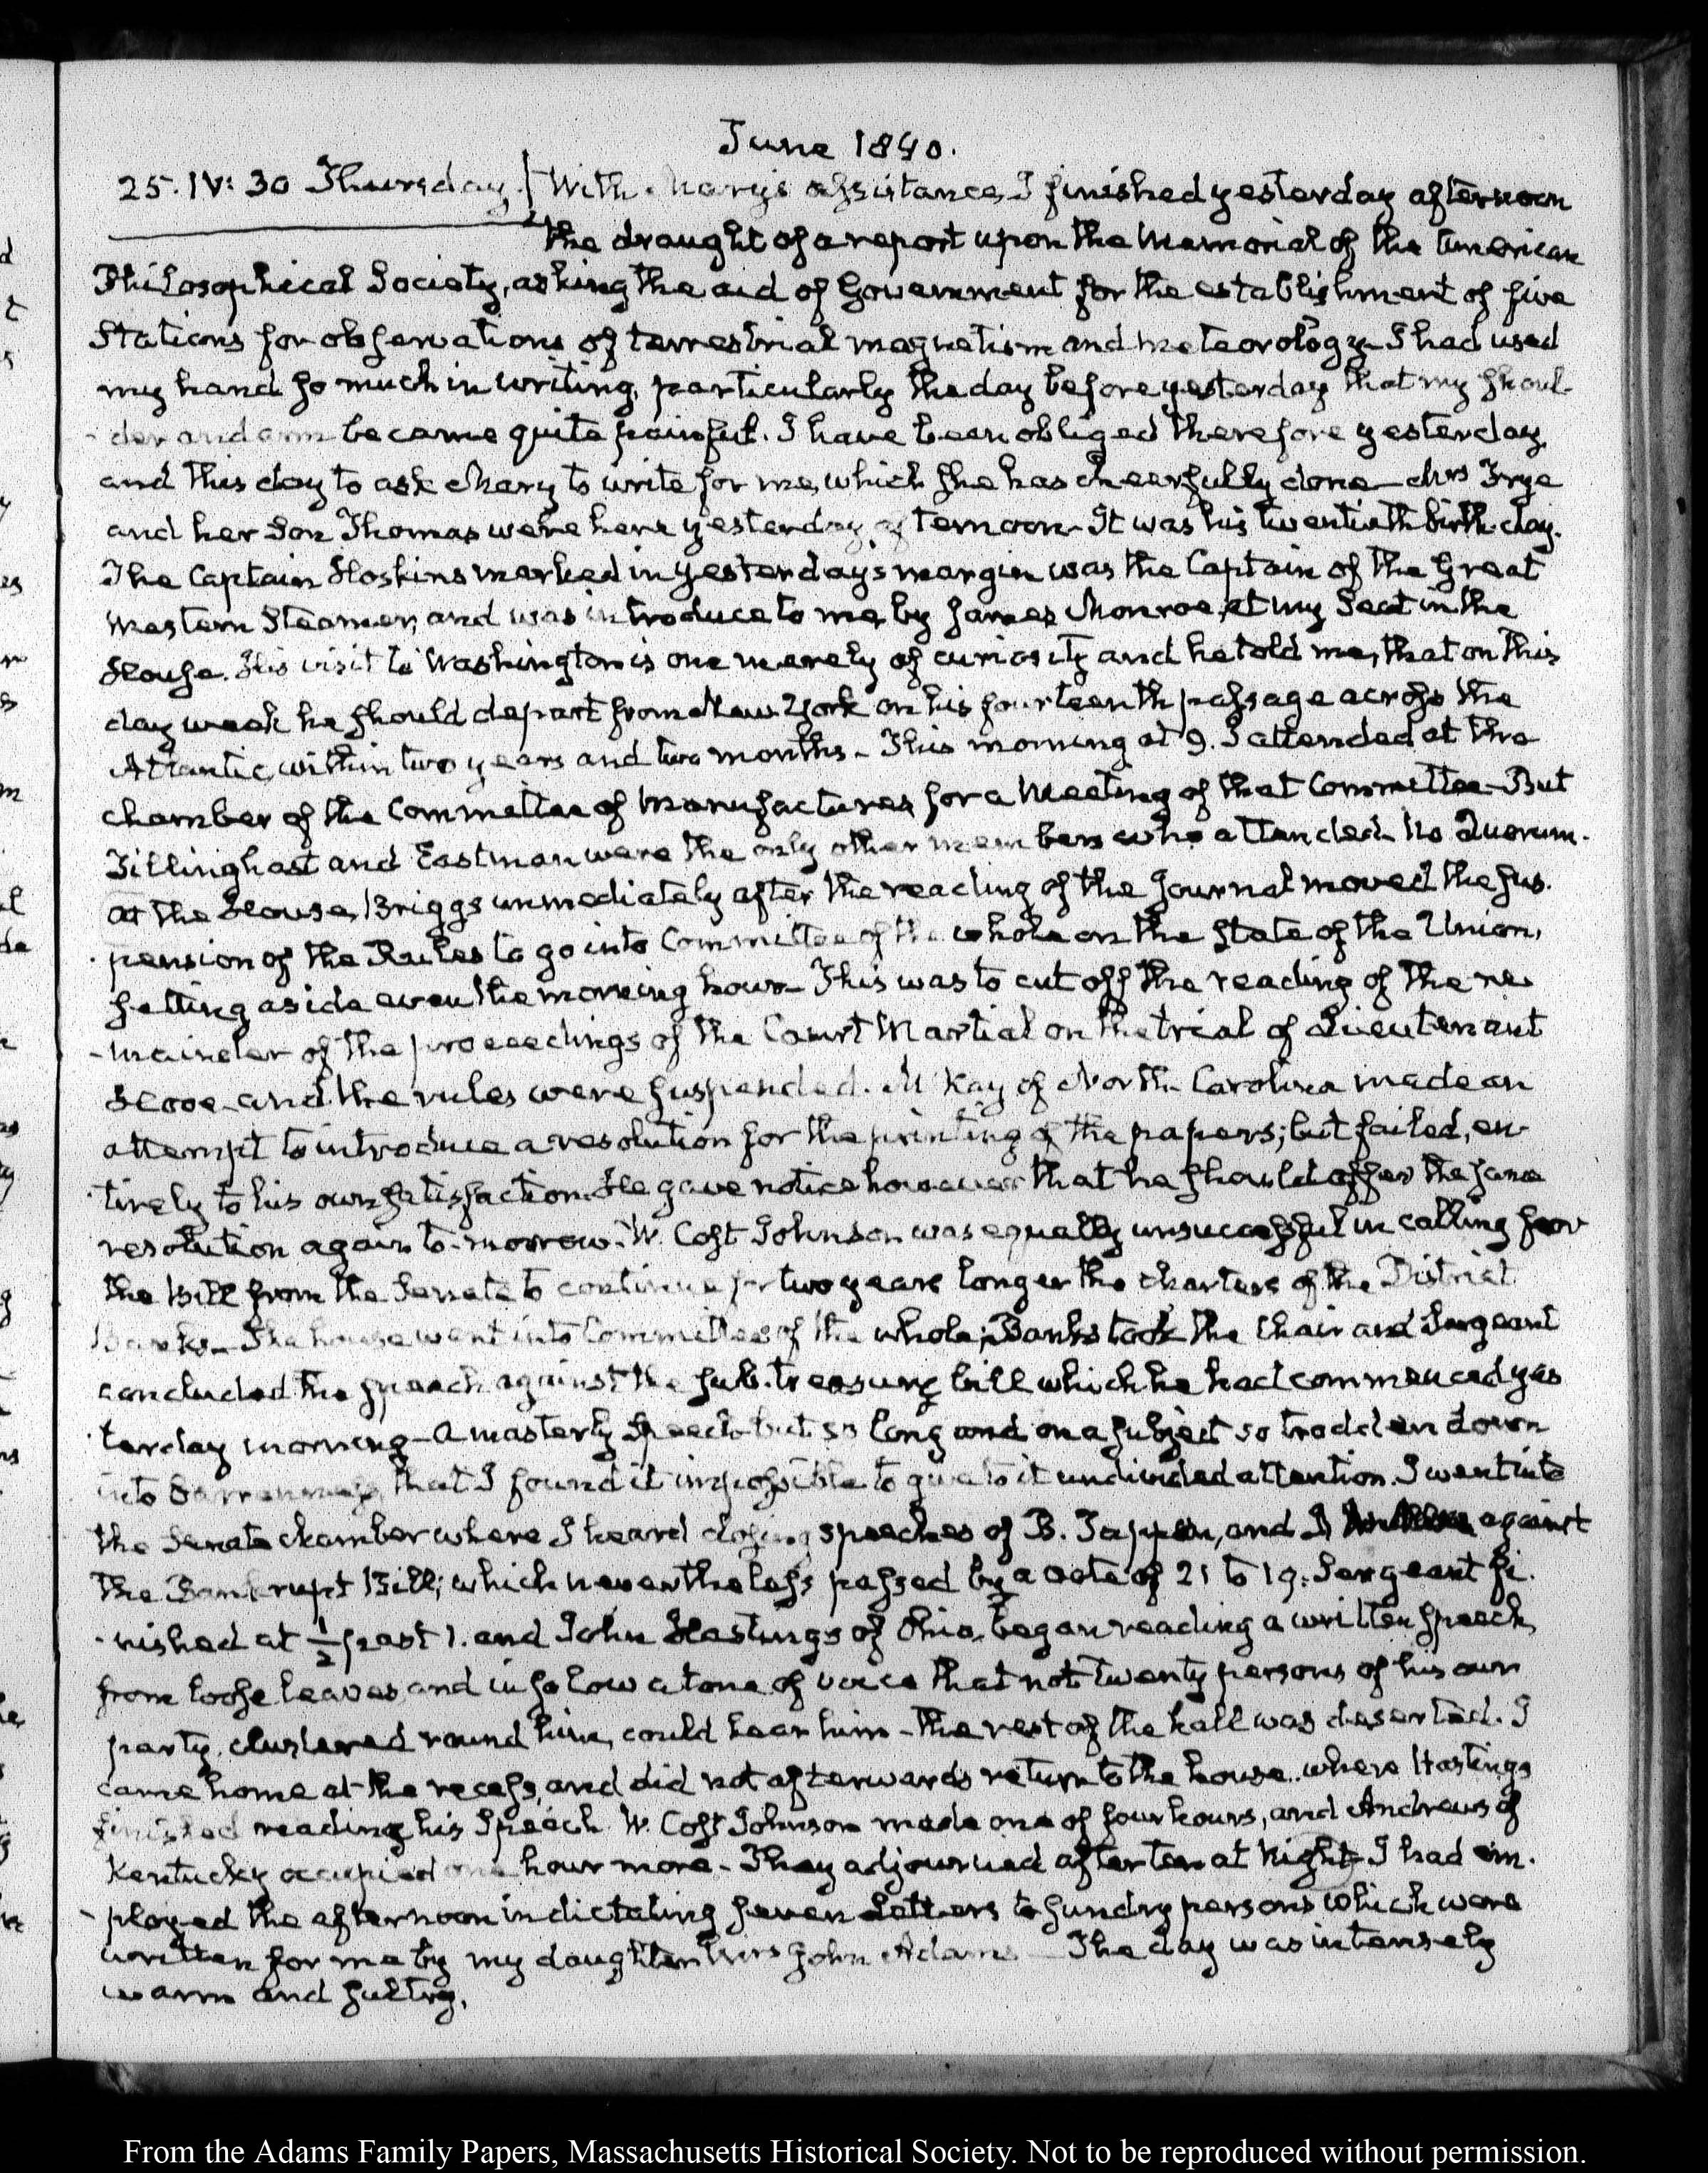 June 1840.
25. IV: 30 Thursday. With Mary's assistance, I finished yesterday afternoon
the draught of a report upon the Memorial of the American
Philosophical Society, asking the aid of Government for the establishment of five
Stations for observations of terrestrial magnetism and meteorology. I had used
my hand so much in writing, particularly the day before yesterday that my shoul-
-der and arm became quite painful. I have been obliged therefore yesterday
and this day to ask Mary to write for me, which she has cheerfully done— Mrs Frye
and her Son Thomas were here yesterday afternoon— It was his twentieth birth-day.
The Captain Hoskins marked in yesterday's margin was the Captain of the Great
Western Steamer, and was introduce to me, by James Monroe, at my Seat in the
House. His visit to Washington is one merely of curiosity and he told me, that on this
day week he should depart from New-York on his fourteenth passage across the
Atlantic, within two years and two months— This morning at 9. I attended at the
chamber of the Committee of Manufactures for a Meeting of that Committee— But
Tillinghast and Eastman were the only other members who attended— No Quorum.
At the House, Briggs immediately after the reading of the Journal moved the sus-
-pension of the Rules to go into Committee of the whole on the State of the Union,
setting aside even the morning hour— This was to cut off the reading of the re
-mainder of the proceedings of the Court Martial on the trial of Lieutenant
Hooe— and the rules were suspended. McKay of North-Carolina made an
attempt to introduce a resolution for the printing of the papers; but failed, en-
-tirely to his own satisfaction. He gave notice however that he should offer the same
resolution again to-morrow— W. Cost Johnson was equally unsuccessful in calling for
the Bill from the Senate to continue for two years longer the charters of the District
Banks— The house went into Committee of the whole; Banks took the Chair and Sergeant
concluded the speech against the sub-treasury bill which he had commenced yes
-terday morning— A masterly Speech— but so long and on a subject so trodden down
into barrenness, that I found it impossible to give to it undivided attention. I went into
the Senate chamber where I heard closing speeches of B. Tappan, and against
the Bankrupt Bill; which nevertheless passed by a vote of 21 to 19. Sergeant fi-
-nished at ½ past 1. and John Hastings of Ohio, began reading a written speech,
from loose leaves, and in so low a tone of voice that not twenty persons of his own
party, clustered round him, could hear him— the rest of the hall was deserted. I
came home at the recess, and did not afterwards return to the house.. where Hastings
finished reading his Speech. W. Cost Johnson made one of four hours, and Andrews of
Kentucky occupied one hour more— They adjourned after ten at Night. I had em-
-ployed the afternoon in dictating seven Letters to sundry persons which were
written for me by my daughter Mrs John Adams— The day was intensely
warm and sultry.
From the Adams Family Papers, Massachusetts Historical Society. Not to be reproduced without permission.